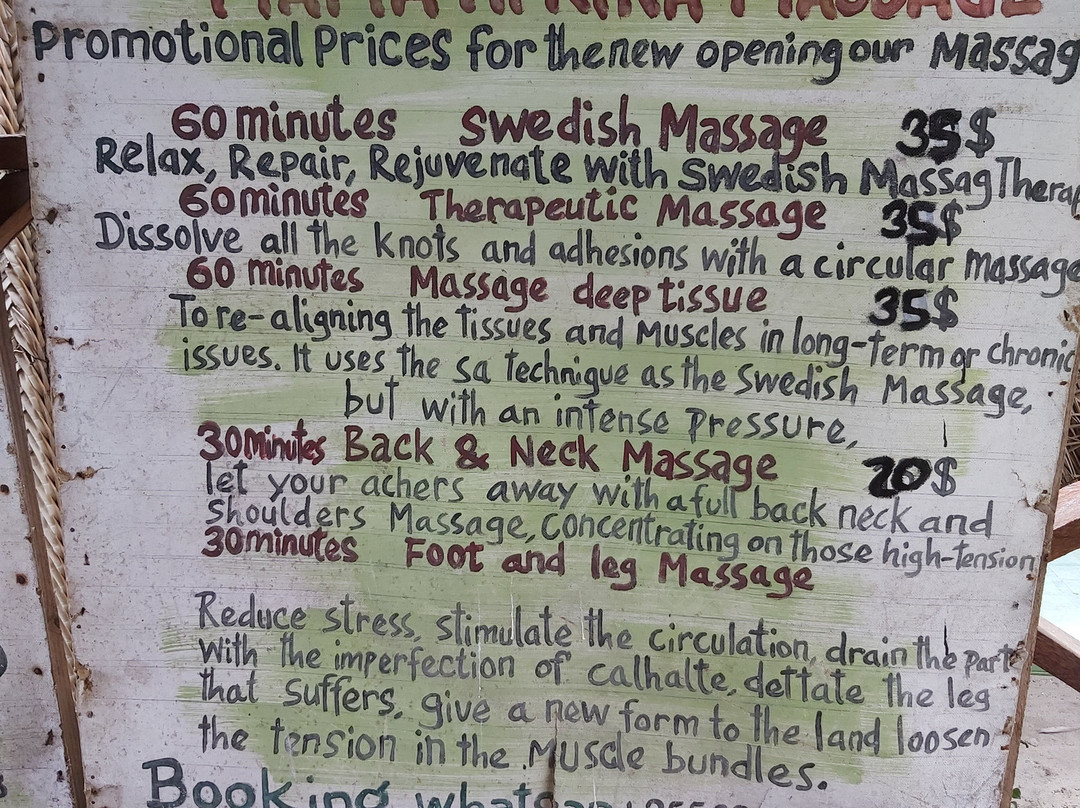 MAMA AFRIKA MASSAGE
Promotional Prices for the new opening our Massag
60 minutes Swedish Massage 35$
Relax, Repair, Rejuvenate with Swedish Massag Therap
60 minutes Therapeutic Massage 35$
Dissolve all the knots and adhesions with a circular massage
60 minutes Massage deep tissue 35$
To re-aligning the tissues and Muscles in long-term or chronic
issues. It uses the sa technique as the Swedish Massage,
but with an intense pressure,
30 minutes Back & Neck Massage 20$
let your achers away with a full back neck and
Shoulders Massage, concentrating on those high-tension
30 minutes Foot and leg Massage
Reduce stress, stimulate the circulation, drain the part
with the imperfection of calhalte, dettate the leg
that suffers, give a new form to the land loosen
the tension in the Muscle bundles.
Booking whatsap